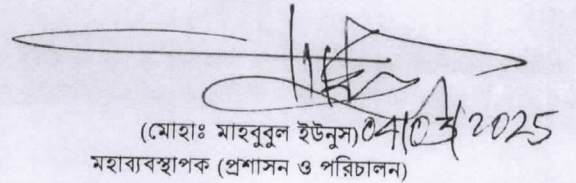 (মোহাঃ মাহবুবুল ইউনুস) 04/03/2025
মহাব্যবস্থাপক (প্রশাসন ও পরিচালন)